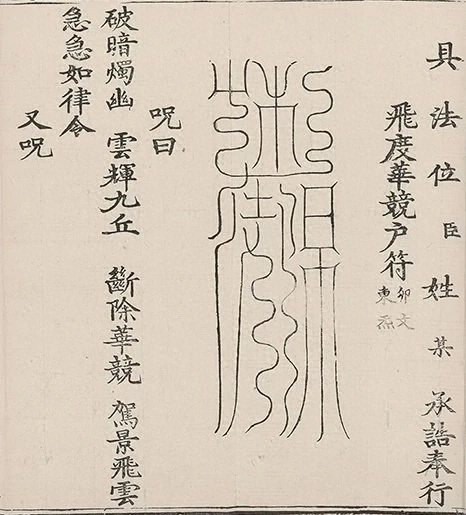 具法位臣姓某承誥奉行
飛度華競户符
卯文
東炁
咒曰
破暗燭幽 雲輝九丘 斷除華競 駕景飛雲
急急如律令
又咒